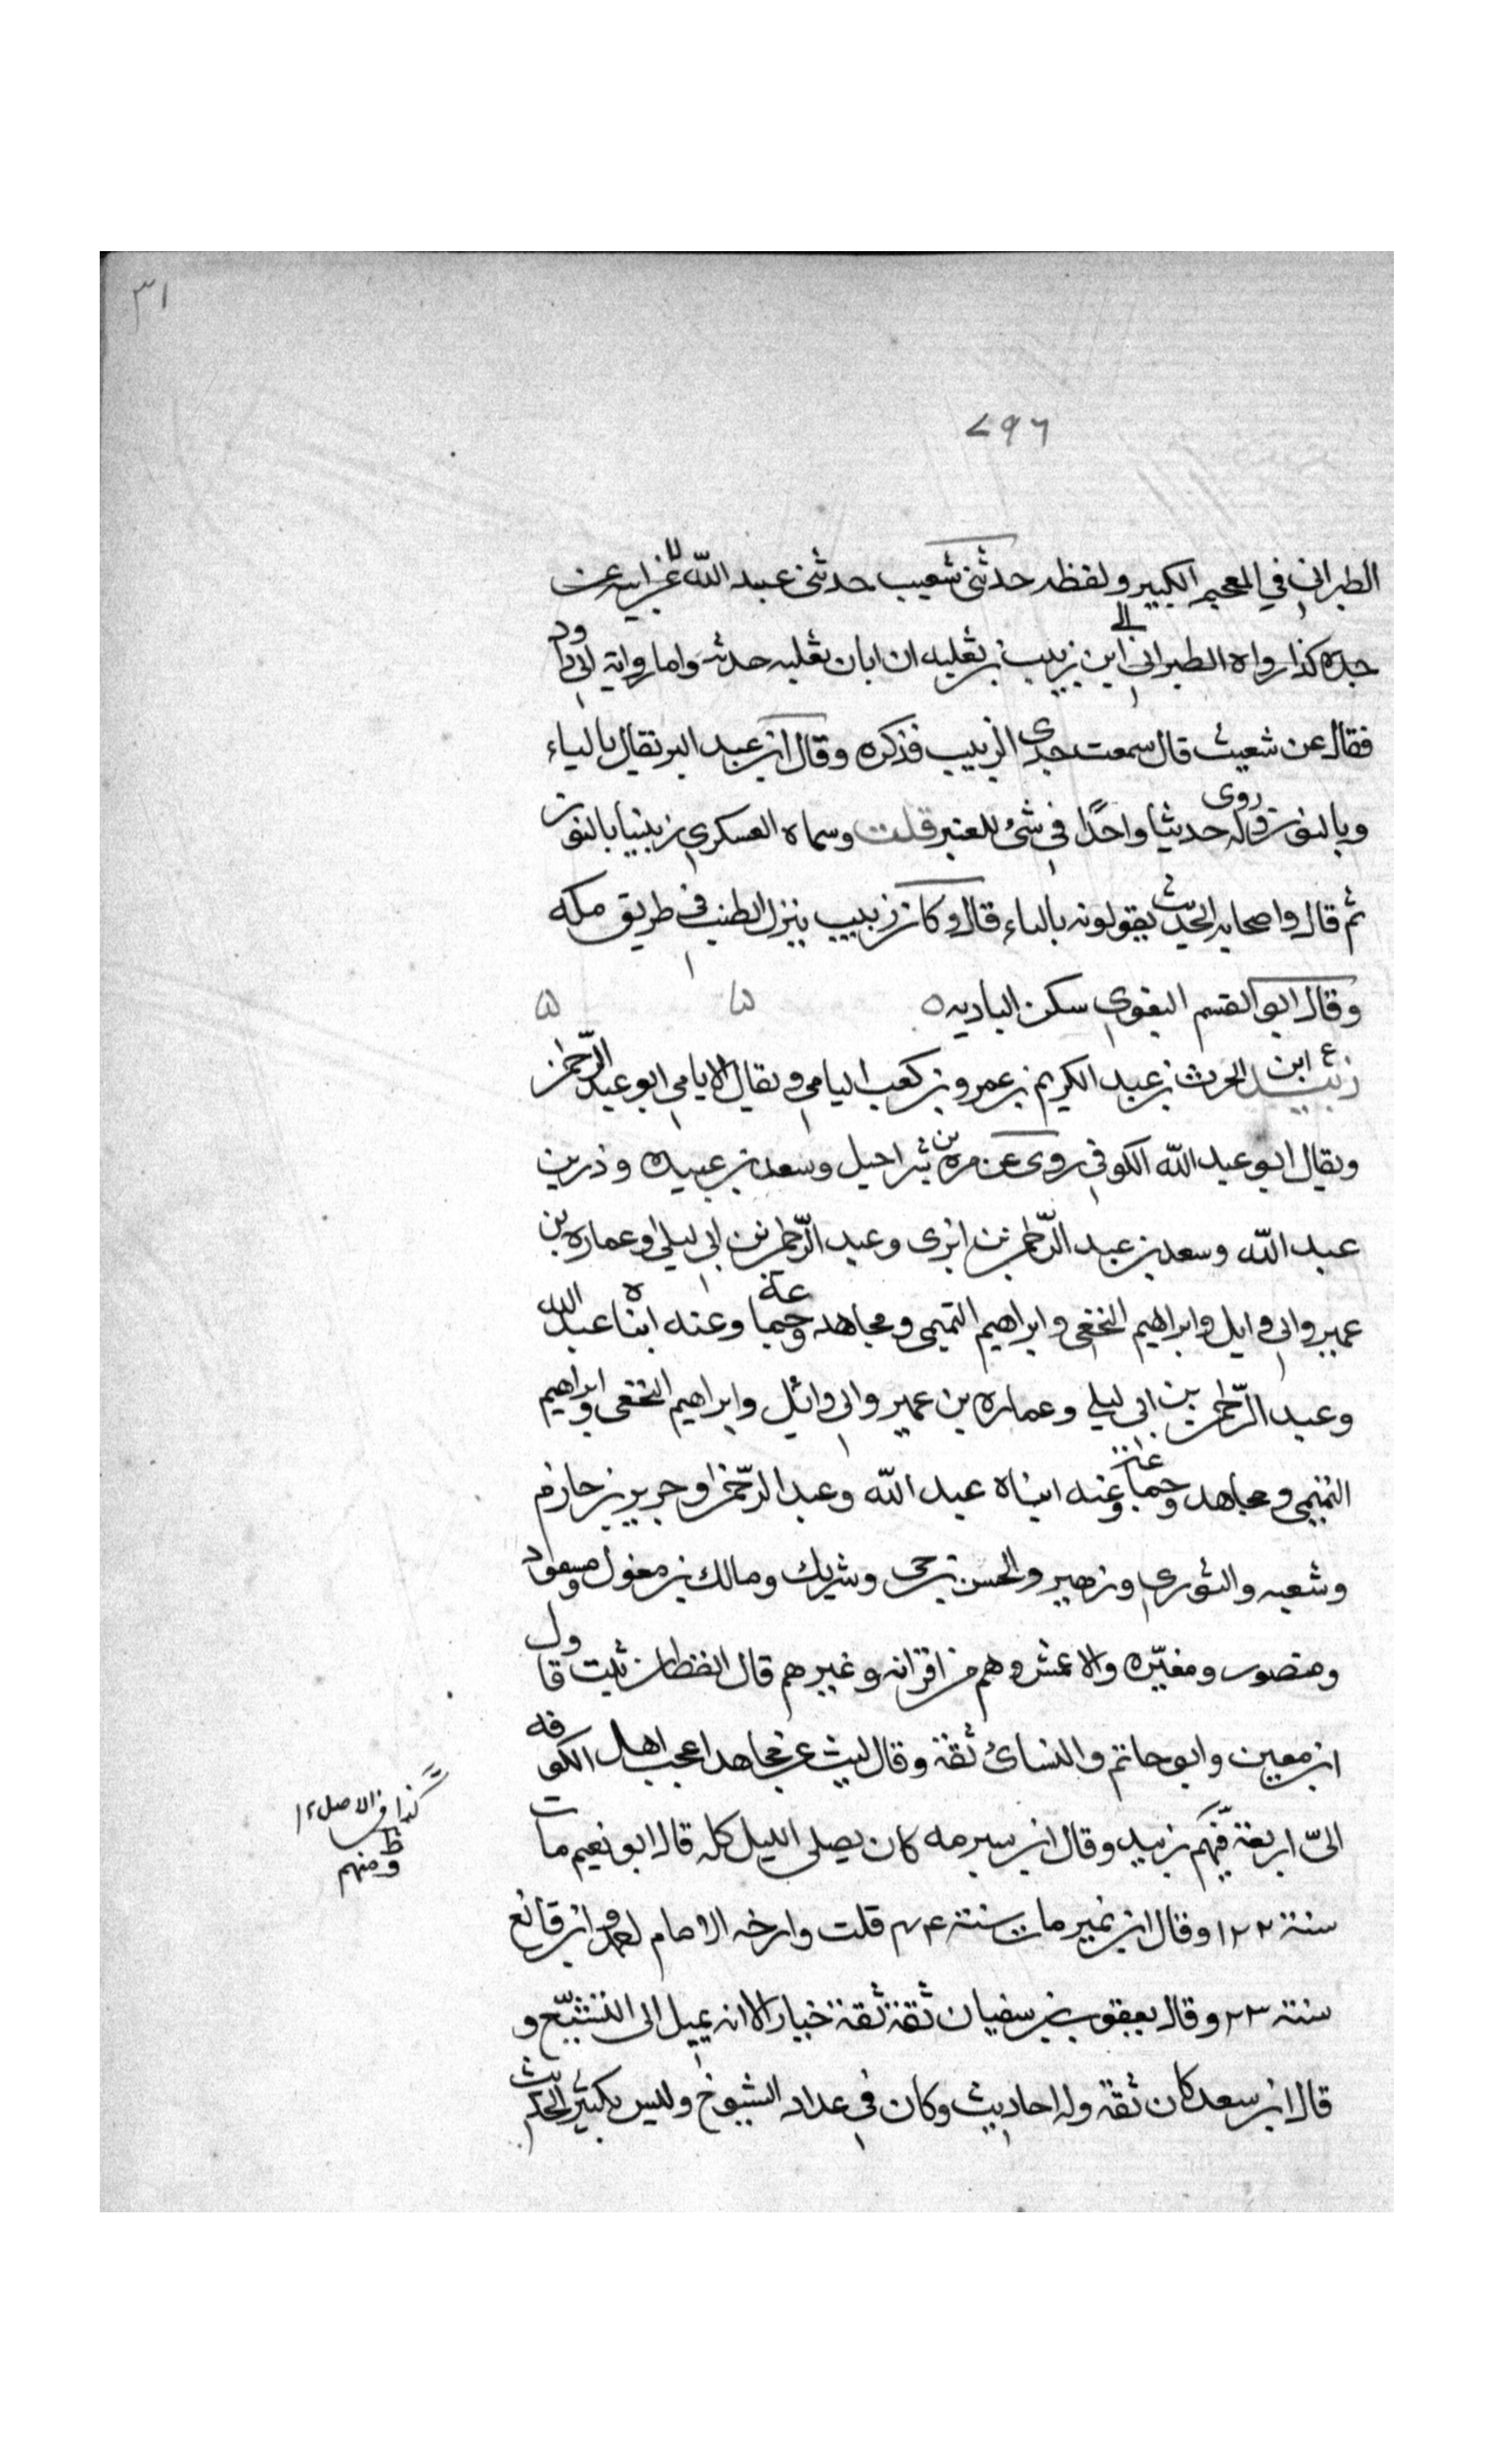 ٣١
٧٩٦
الطبراني في المعجم الكبير ولفظه حدثني شعيب حدثني عبيد الله عن ابيه عن
جده كذا رواه الطبراني الى ابن زبيب بن ثعلبه ان اباه ثعلبه حدثه واما رواية ابي داود
فقال عن شعيث قال سمعت جدي الزبيب فذكره وقال ابن عبد البر يقال بالياء
وبالنون روى له حديثا واحدا في شئ للعنبر قلت وسماه العسكري زنيبا بالنون
ثم قال واصحاب الحديث يقولونه بالباء قال وكان زبيب ينزل الطنب في طريق مكه
وقال ابو القسم البغوي سكن الباديه ه
زبيد ع ابن الحرث بن عبد الكريم بن عمرو بن كعب اليامي ويقال الايامي ابو عبد الرحمن
ويقال ابو عبد الله الكوفي روى عن مره بن شراحيل وسعد بن عبيده وذر بن
عبد الله وسعد بن عبد الرحمن بن ابزى وعبد الرحمن بن ابي ليلى وعماره بن
عمير وابي وايل وابراهيم النخعي وابراهيم التيمي ومجاهد وجماعة وعنه ابناه عبد الله
وعبد الرحمن بن ابي ليلى وعماره بن عمير وابي وائل وابراهيم النخعي وابراهيم
التيمي ومجاهد وجماعة وعنه ابناه عبد الله وعبد الرحمن وجرير بن حازم
وشعبه والثوري وزهير والحسن بن حي وشريك ومالك بن مغول ومسعود
ومنصور ومغيره والاعمش وهم من اقرانه وغيرهم قال القطان ثبت وقال
ابن معين وابو حاتم والنسائ ثقة وقال ليث عن مجاهد اعجب اهل الكوفه
الى اربعة فيهم زبيد وقال ابن سبرمه كان يصلي الليل كله قال ابو نعيم مات
سنة ١٢٢ وقال ابن نمير مات سنة ٢٤ قلت وارخه الامام احمد وابن قانع
سنة ٢٣ وقال يعقوب بن سفيان ثقة ثقة خيار الا انه يميل الى التشيع و
قال ابن سعد كان ثقة وله احاديث وكان في عداد الشيوخ وليس بكثير الحديث
كذا في الاصل ١٢
ظ
ومنهم